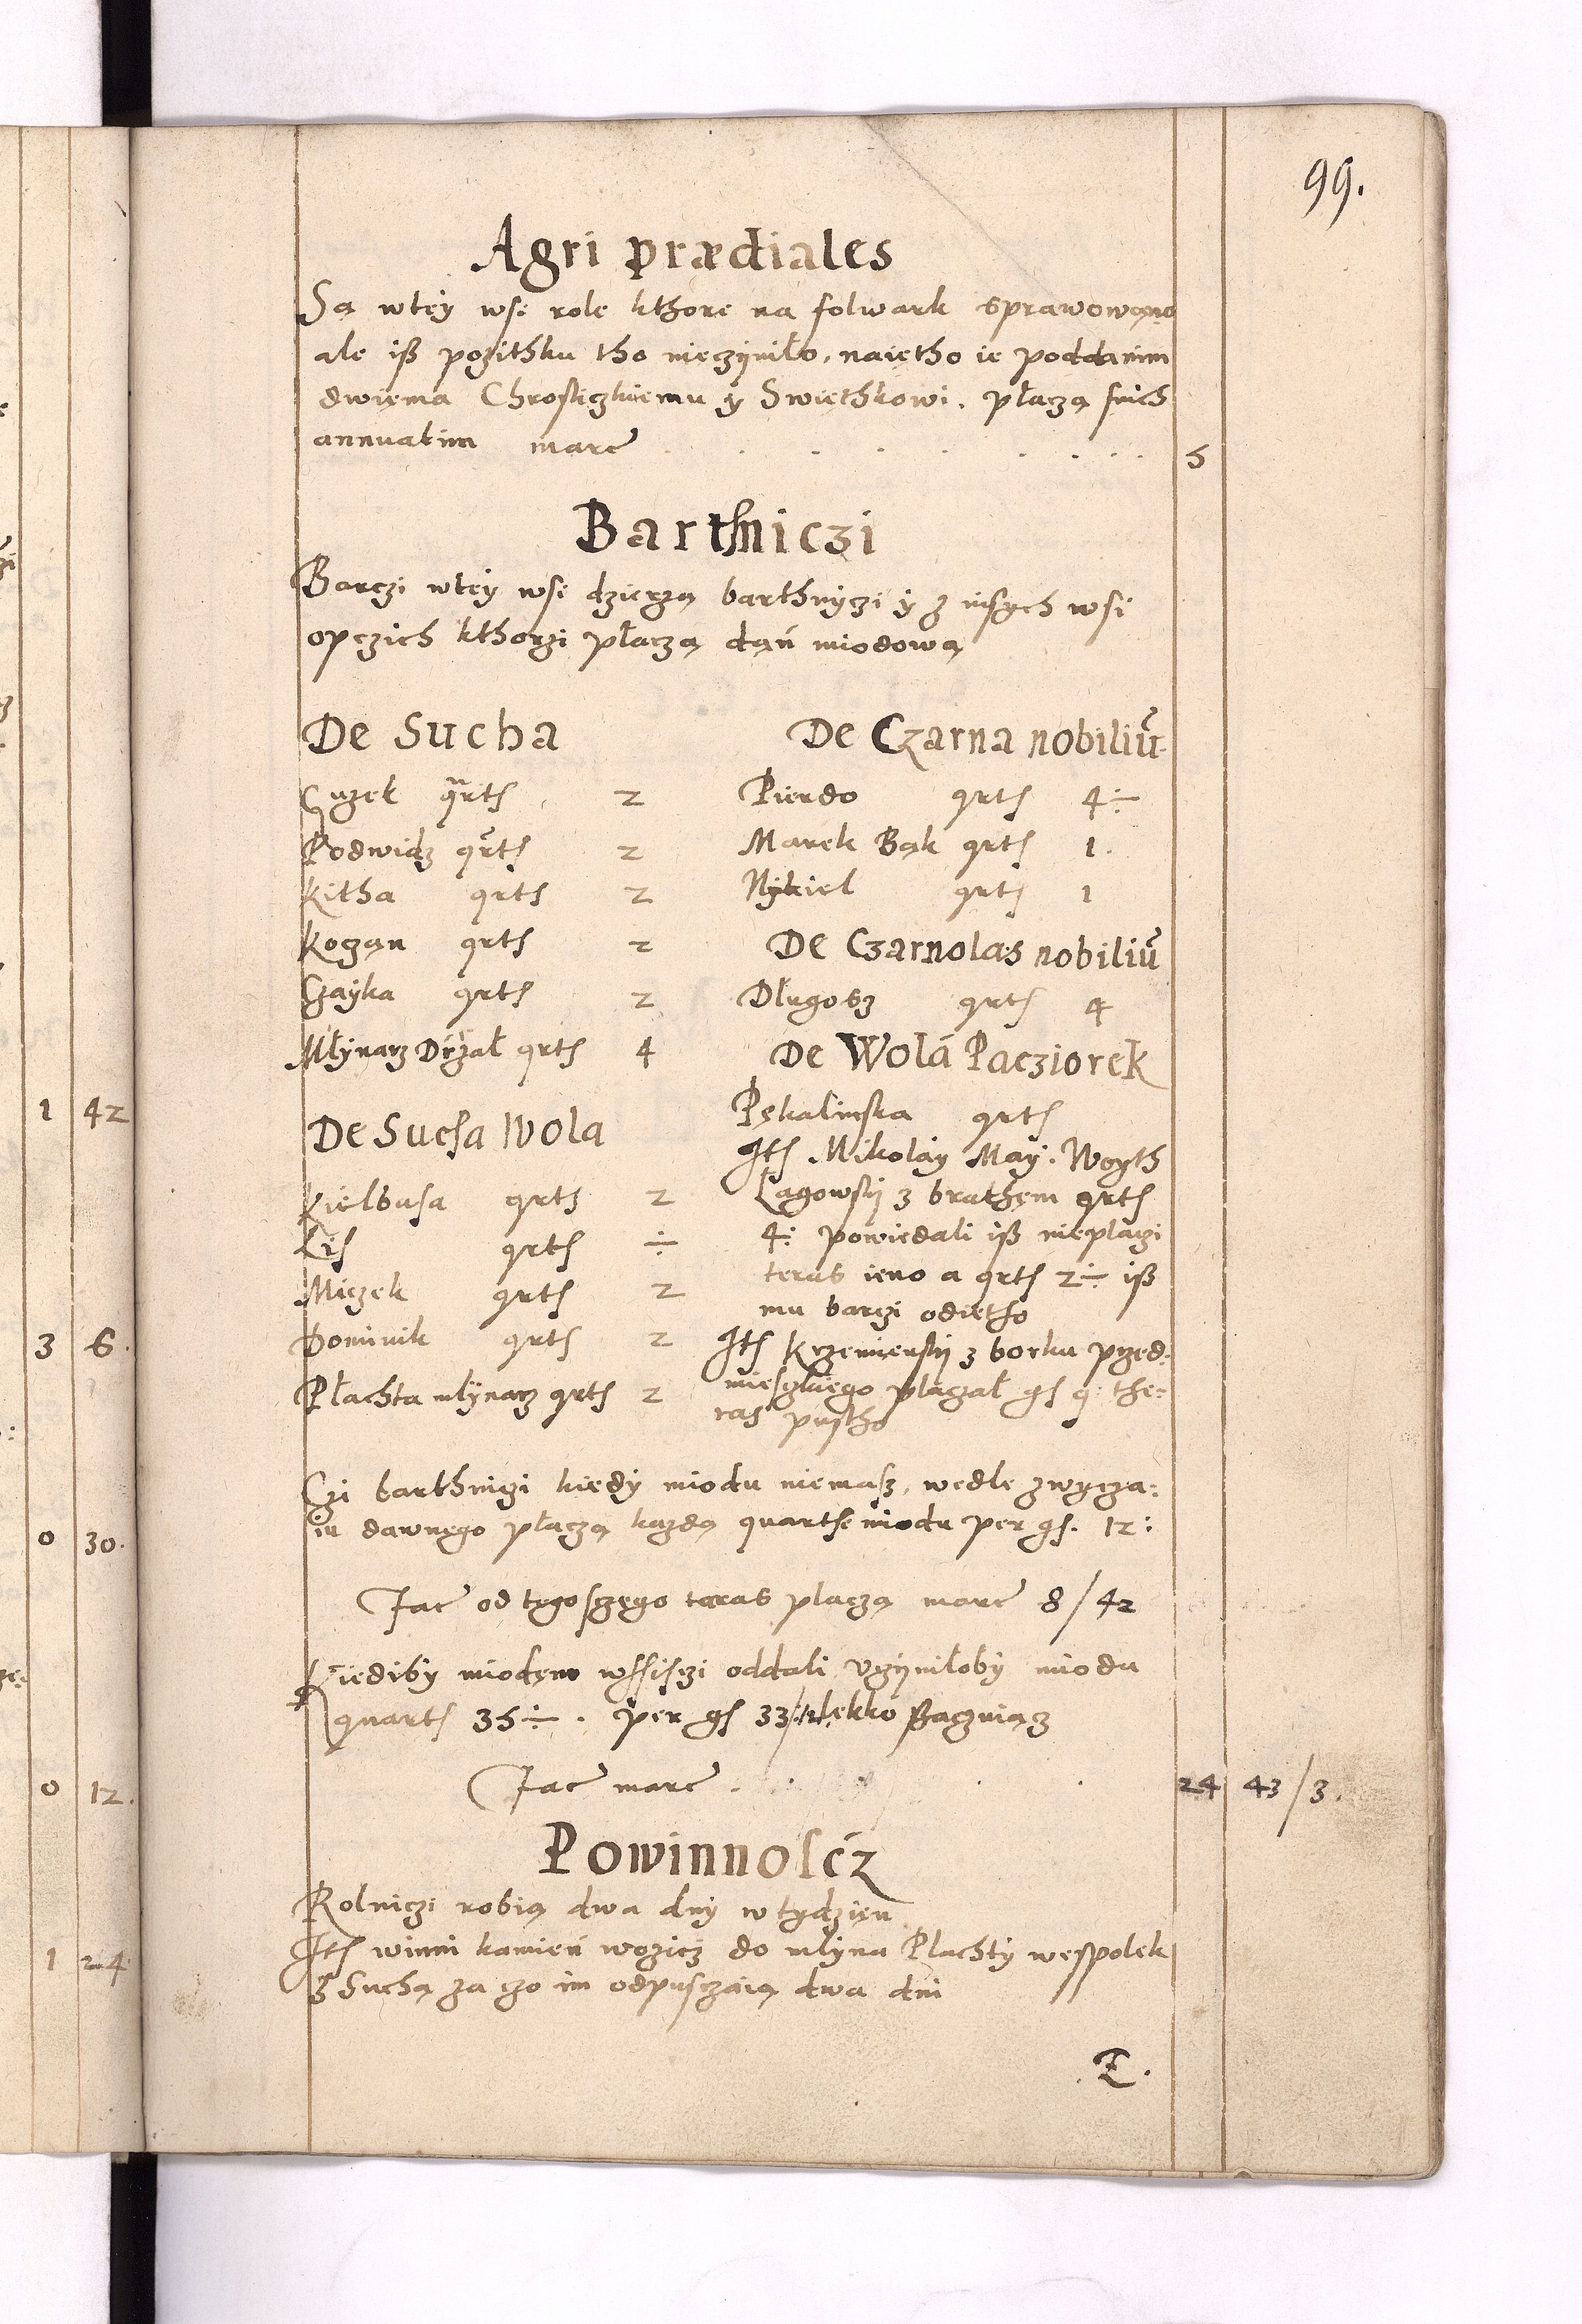 99.
Agri prædiales
Są wtey wsi role kthore na folwark sprawowano
ale iß pozithku tho nieczyniło, naiętho ie poddanim
dwiema Chrosliczkiemu y Swiethkowi. płaczą snich
annuatim marc . . . . . . . . 5
Barthniczi
Barczi wtey wsi dzierzą barthnyczi y z inssych wsi
opczich kthorzi płaczą dań miodową
De Sucha
Guzek qrts 2
Podwidz qrts 2
Kitha qrts 2
Kozan qrts 2
Czayka qrts 2
Młynarz Drzał qrts 4
De Sucha Wola
Kielbasa qrts 2
Lis qrts ÷
Miczek qrts 2
Dominik qrts 2
Płachta młynarz qrts 2
De Czarna nobiliū
Pierdo qrts 4÷
Marek Bąk qrts 1.
Nykiel qrts 1
De Czarnolas nobiliū
Długosz qrts 4
De Wola Pacziorek
Pękalinska qrts
Its Mikolay May. Woyth
Łagowsky z brathem qrts
4÷ powiedali iß nieplaczi
teras ieno a qrts 2÷ iß
mu barczi odiętho
Its Krzemiensky z borku przed:
miesczkiego płaczał gs 9: the:
ras pustho
Czi barthniczi kiedy miodu niemasz, wedle zwycza:
iu dawnego płaczą kazdą quarthe miodu per gs. 12:
Fac od tego sczego teras placzą marc 8/42
Kiediby miodem wssisczi oddali vczyniłoby miodu
quarts 35÷. per gs 33/12. lekko szacziuąz
Fac marc . . . . 24 43/3.
Powinnoscz
Rolniczi robią dwa dny w tydzien
Its winni kamień wozicz do młyna Płachty wespolek
z Suchą za czo im odpusczaią dwa dni
E.
1 42
3 6.
0 30.
0 12.
1 24